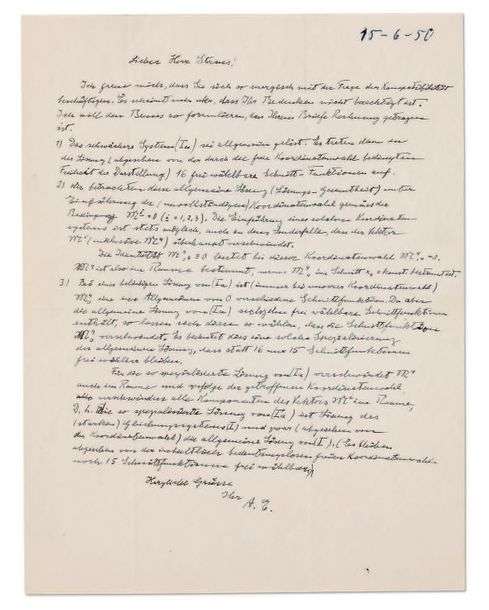 15-6-50
Lieber Herr Straus!
Ich freue mich, dass Sie sich so energisch mit der Frage der Kompatibilität
beschäftigen. Es scheint mir aber, dass Ihr Bedenken nicht berechtigt ist.
Ich will den Beweis so formulieren, dass Ihrem Briefe Rechnung getragen
ist.
1) Das schwächere System (Ia) sei allgemein gelöst. Es treten dann in
der Lösung (abgesehen von der durch die freie Koordinatenwahl bedingten
Freiheit der Darstellung) 16 frei wählbare Schnitt-Funktionen auf.
2) Wir betrachten diese allgemeine Lösung (Lösungs-Gesamtheit) unter
Einführung der (unvollständigen) Koordinatenwahl gemäss der
Bedingung (i = 1, 2, 3). Die Einführung eines solchen Koordinaten-
systems ist stets möglich, auch in dem Sonderfalle, dass der Vektor
überhaupt verschwindet.
Die Identität lautet bei dieser Koordinatenwahl
ist also im Raume bestimmt, wenn im Schnitt bekannt ist.
3) Bei einer beliebigen Lösung von (Ia) ist (immer bei unserer Koordinatenwahl)
eine im Allgemeinen von 0 verschiedene Schnittfunktion. Da aber
die allgemeine Lösung von (Ia) frei wählbare Schnittfunktionen
enthält, so lassen sich diese so wählen, dass die Schnittfunktion
verschwindet. Es bedeutet dies eine solche Spezialisierung
der allgemeinen Lösung, dass statt 16 nur 15 Schnittfunktionen
frei wählbar bleiben.
Für die so spezialisierte Lösung von (Ia) verschwindet
auch im Raume und zufolge der getroffenen Koordinatenwahl
verschwinden alle Komponenten des Vektors im Raume,
d. h. die so spezialisierte Lösung von (Ia) ist Lösung des
(starken) Gleichungssystems (I) und zwar (abgesehen von
der Koordinatenwahl) die allgemeine Lösung von (I). (Es bleiben
abgesehen von der bedeutungslosen freien Koordinatenwahl
noch 15 Schnittfunktionen frei wählbar)
Herzliche Grüsse
Ihr
A. E.